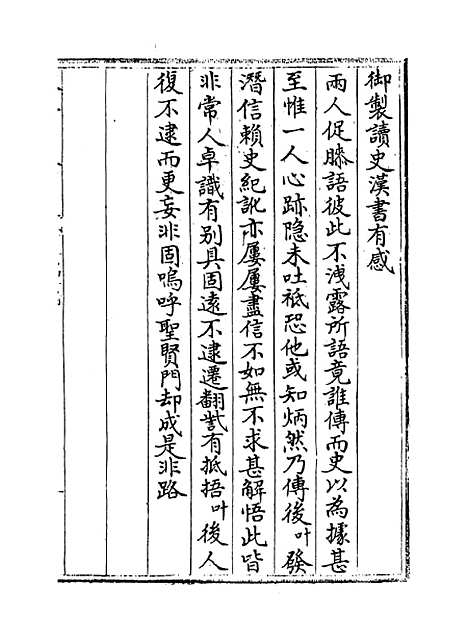 御製讀史漢書有感
兩人促膝語彼此不洩露所語竟誰傳而史以為據甚
至惟一人心跡隐未吐袛恐他或知炳然乃傳後叶發
潛信賴史紀訛亦屢屢盡信不如無不求甚解悟此皆
非常人卓識有别具固遠不逮遷翻嘅有抵捂叶後人
復不逮而更妄非固嗚呼聖賢門却成是非路